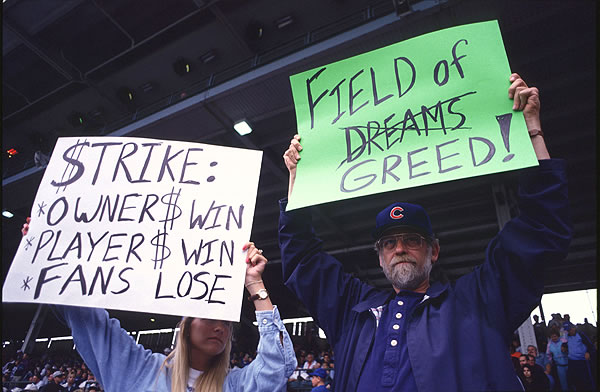 $TRIKE:
*OWNER$ WIN
*PLAYER$ WIN
*FANS LOSE
FIELD of
DREAMS
GREED!
C